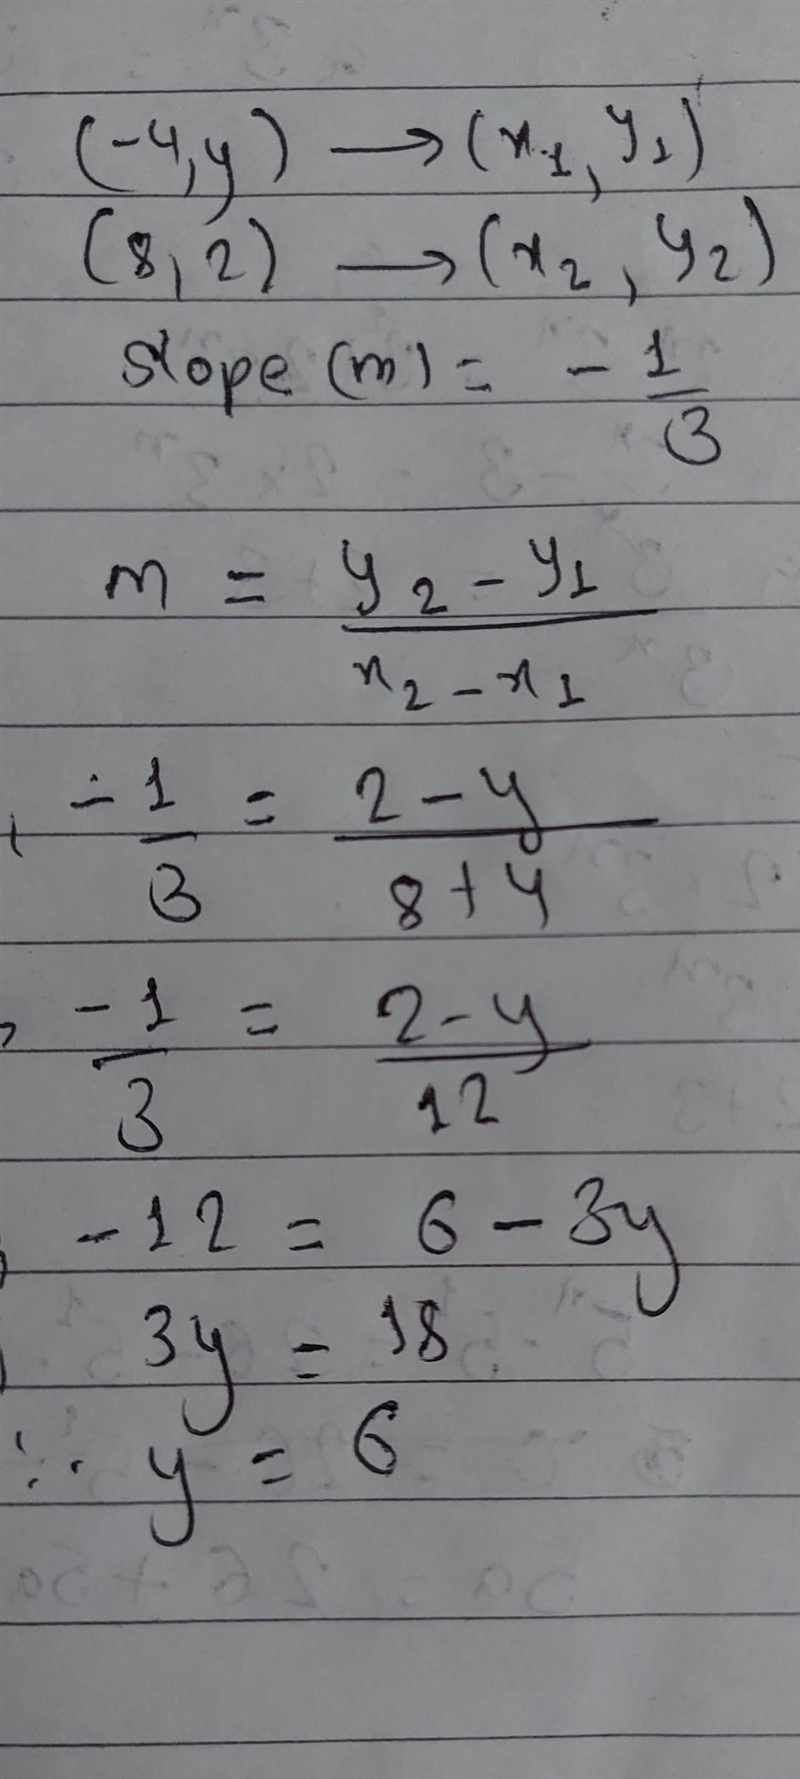 (-4, y) → (x₁, y₁)
(8, 2) → (x₂, y₂)
slope (m) = - 1/3
m = (y₂ - y₁)/(x₂ - x₁)
, -1/3 = (2 - y)/(8 + 4)
, -1/3 = (2 - y)/12
, -12 = 6 - 3y
, 3y = 18
∵ y = 6